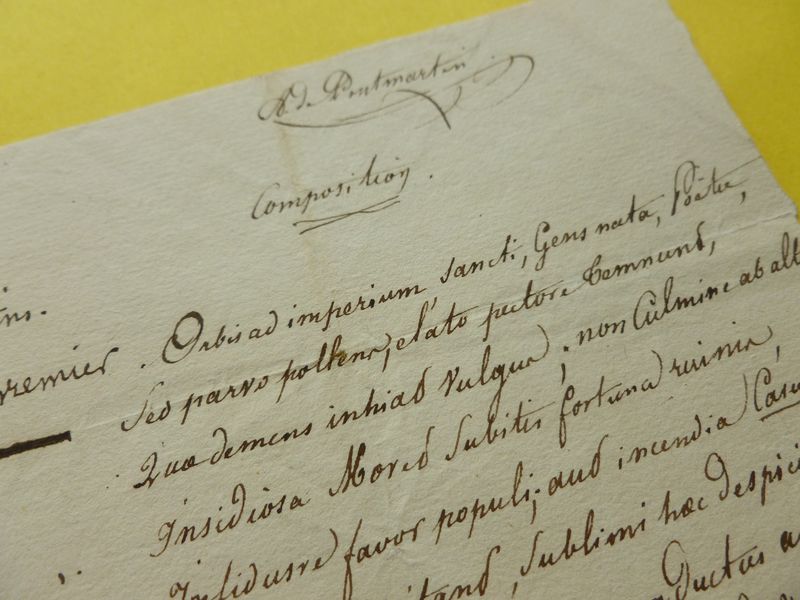 A. de Pontmartin
Composition.
ins.
Premier. Orbis ad imperium sancti, Gens nata, Poëtæ,
Sed parvo pollens, elato pectore temnunt,
Quæ demens inhiat vulgus; non Culmine ab alt
Insidiosa Movet subitis fortuna ruinis,
Infidusve favor populi; aut incendia Casu
itant, sublimi hæc despici
Ductus a